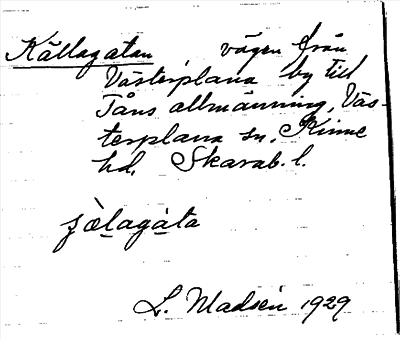 Källagatan vägen från
Västerplana by till
Tåns allmänning, Väs-
terplana sn, Kinne
hd, Skarab. l.
L. Madsen 1929